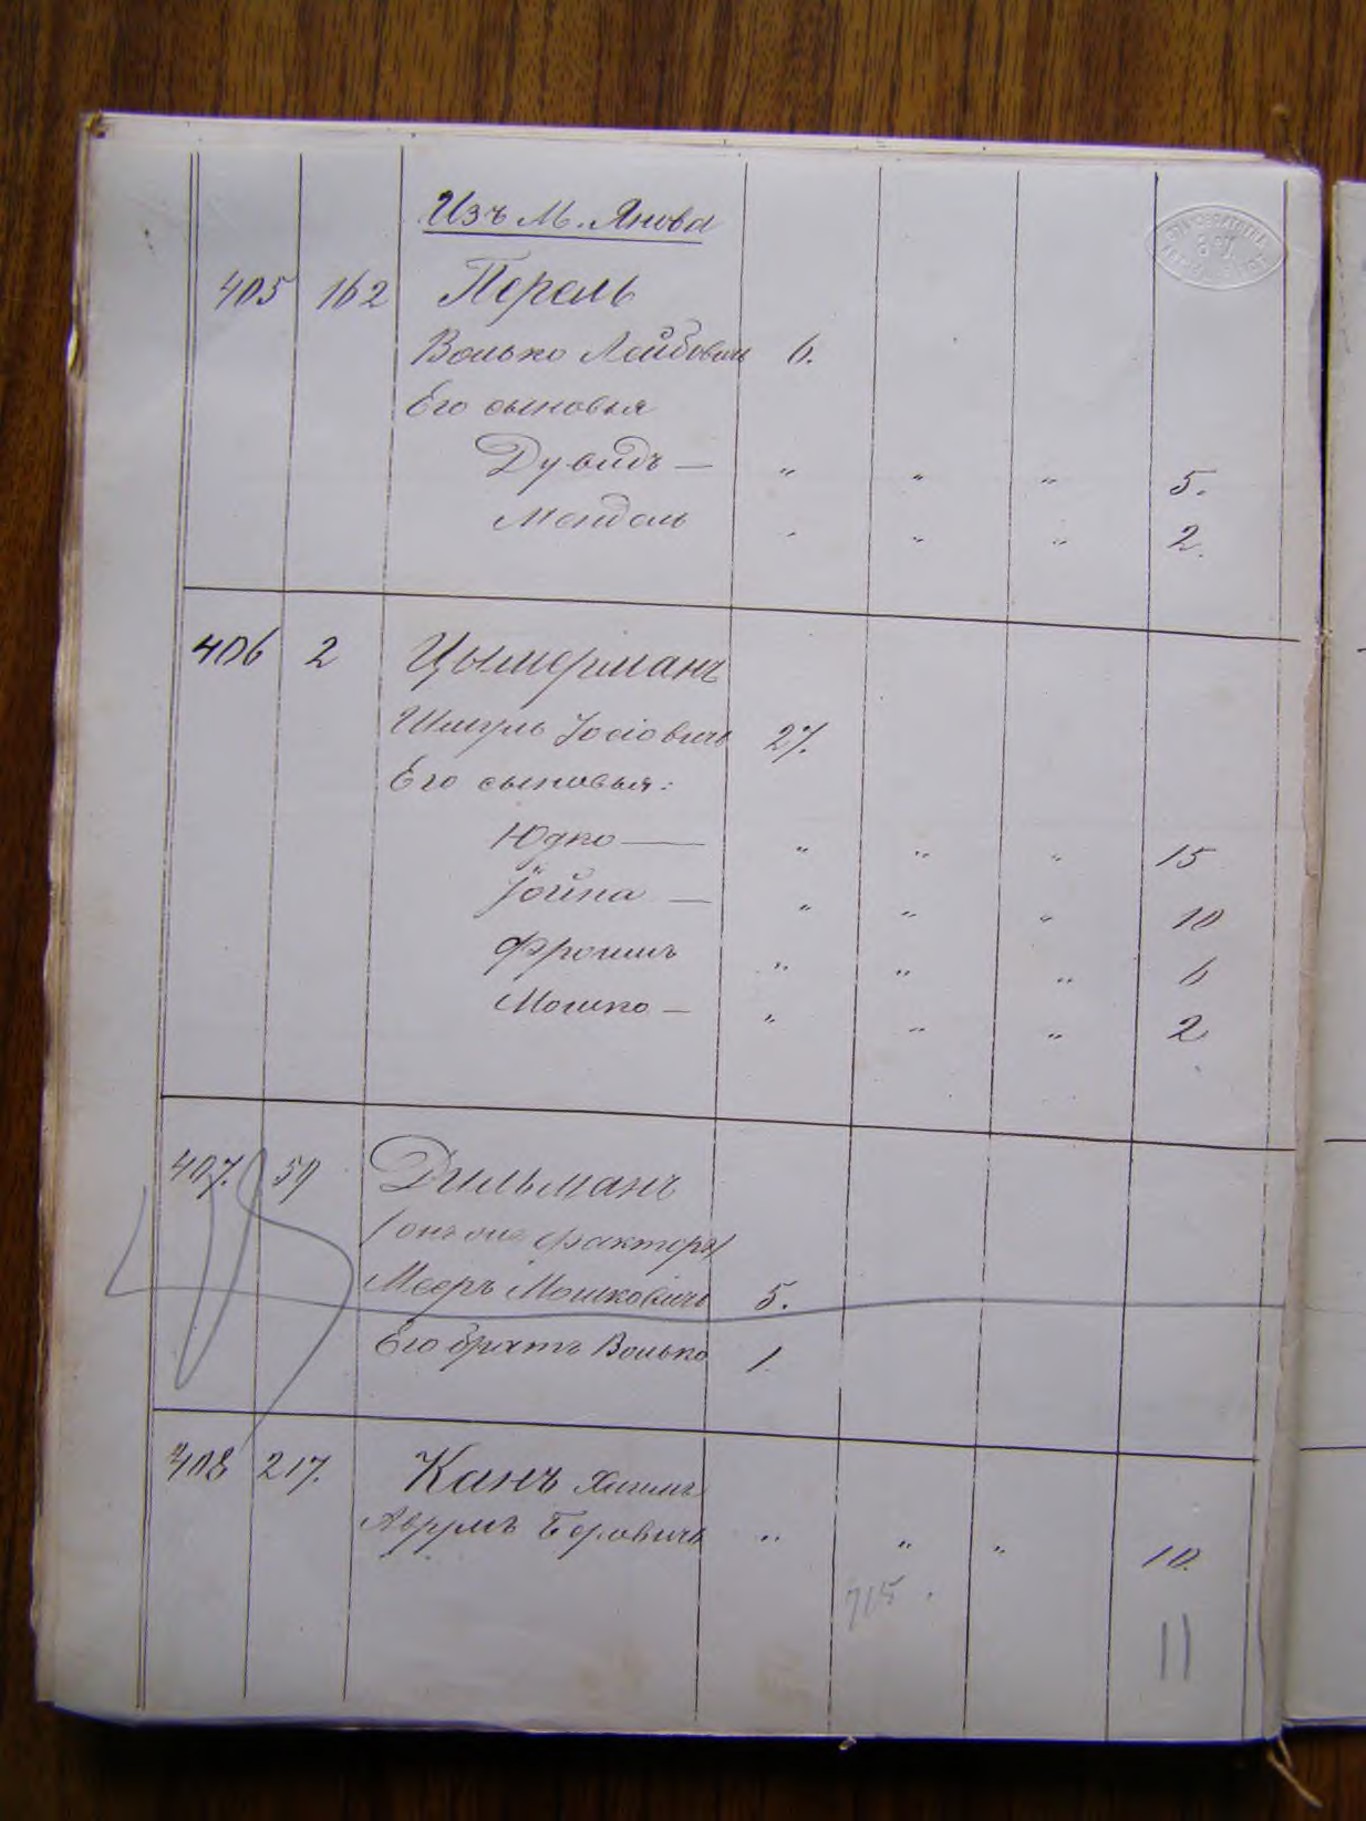 Изъ М. Янова
405 162 Перель
Волько Лейбовичъ 6.
Его сыновья
Дувидъ — „ „ „ 5.
Мендель „ „ „ 2.
406 2 Цымерманъ
Шмуль Іосіовичъ 27.
Его сыновья:
Юдко — „ „ „ 15
Іойна — „ „ „ 10
Фроимъ „ „ „ 6
Мошко — „ „ „ 2
407. 59 Дильманъ
факторъ)
Мееръ Мошковичъ 5.
Его братъ Волько 1.
408 217. Канъ Хаимъ
Аврумъ Беровичъ „ „ „ 10.
715.
11